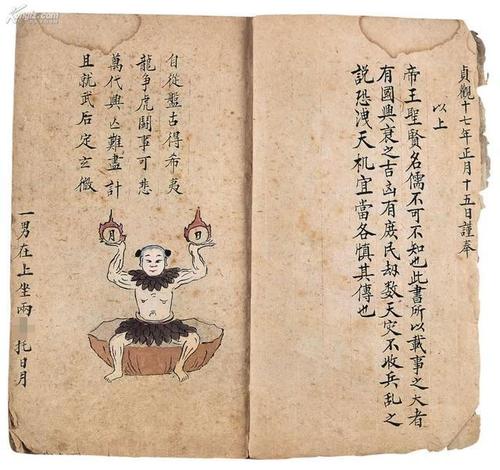 貞觀十七年正月十五日謹奉
以上
帝王聖賢名儒不可不知也此書所以載事之大者
有國興衰之吉凶有庶民劫数天灾不收兵乱之
説恐洩天机宜當各慎其傳也
自從盤古得希夷
龍爭虎鬪事可悲
萬代興亾難盡計
且就武后定玄微
日
月
一男在上坐兩托日月